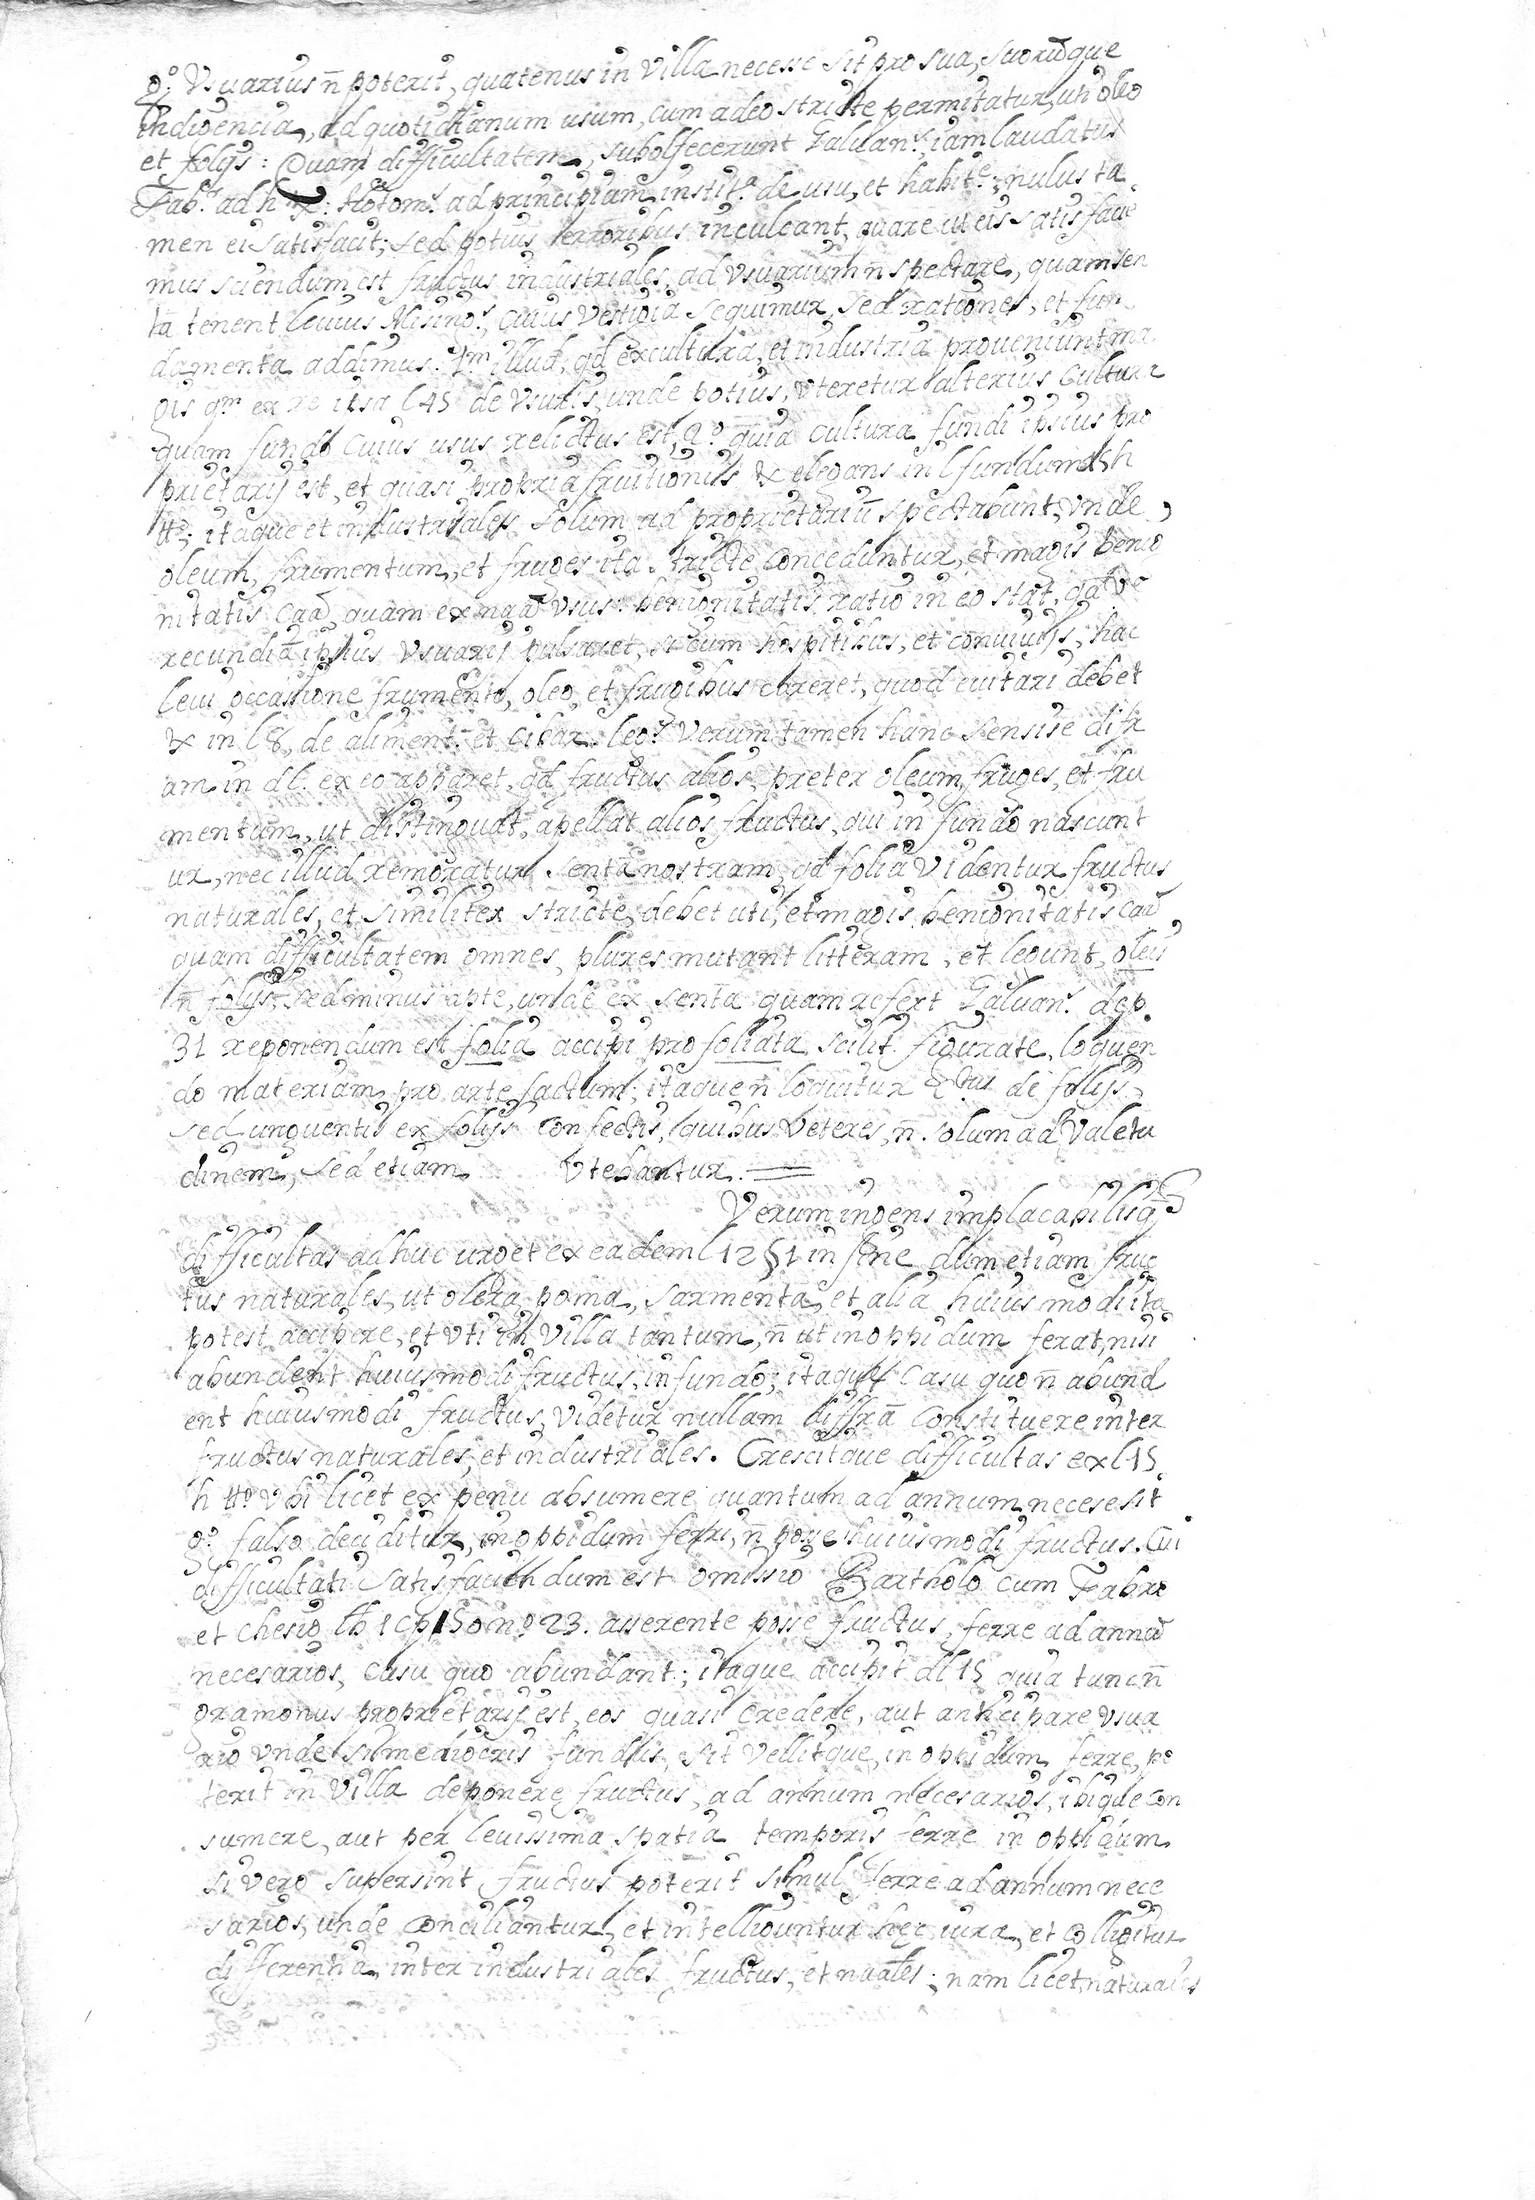 g.º Vsuarius ñ poterit, quatenus in Villa necesse sit pro sua, suorũque
indigencia, ad quotidianum usum, cum adeo stricte permitatur, uti oleo
et folijs: Quam difficultatem, subolfecerunt Galuan.s, iam laudatus
Fab.r ad h tx: Hotom.s ad principium instit.a de usu, et habit.e; nulus ta
men ei satisfacit; sed potius terroribus inculcant, quare ut eis satis facie
mus sciendum est fructus industriales, ad Vsuarium ñ spectare, quam sen
tã tenent leuius Mising.s, cuius Vestigia sequimur, sed rationes, et fun
damenta addimus. 1.m illud, qd ex cultura, et industria proueniunt ma
gis qm ex re ipsa l 45 de Vsuris, unde potius, Vteretur alterius Cultura
quam fundo Cuius usus relictus est, 2.º quia cultura fundi ipsius pro
prietarij est, et quasi propria fruitionis tx elegans in l fundum h
tt.º; itaque et industriales solum ad proprietariũ spectabunt, Vnde
oleum, frumentum, et fruges ita stricte Conceduntur, et magis benig
nitatis Caã, quam ex naã Vsus: benignitatis ratio in eo stat, qd Ve
recundiã ipsius Vsuarij pulsaret, si cum hospitibus, et conuiuijs, hac
leui occassione frumento, oleo, et frugibus careret, quod euitari debet
tx in l 8, de aliment. et Cibar. leg.s Verum tamen hanc sensise difr
am in d l. ex eo apparet, qd fructus alios, preter oleum, fruges, et fru
mentum, ut distinguat, apellat alios fructus, qui in fundo nascunt
ur, nec illud remoratur sentã nostram, qd folia Videntur fructus
naturales, et similiter stricte, debet uti, et magis benignitatis Caã
quam difficultatem omnes, plures mutant litteram, et legunt, oleis
ñ folijs, sed minus apte, unde ex sentã quam refert Galuan.s dep.
31 reponendum est folia accipi pro foliata scilit. figurate, loquen
do materiam pro arte factum; itaque ñ loquitur de folijs,
sed unguentis ex folijs confectis, quibus Veteres, ñ solum ad Valetu
dinem, sed etiam Vtebantur.
Verum ingens implacabilisq
difficultas ad huc urget ex eadem l 12 § 1 in fine dum etiam fruc
tus naturales, ut olera, poma, sarmenta, et alia huius modi ita
potest accipere, et Vti in Villa tantum, ñ ut in oppidum ferat, nisi
abundent huius modi fructus, in fundo; itaque Casu quo ñ abund
ent huius modi fructus, Videtur nullam diffrã Constituere inter
fructus naturales, et industriales. Crescitque difficultas ex l 15
h tt.º Vbi licet ex penu absumere quantum ad annum necese sit
g.º falso deciditur, in oppidum ferri, ñ posse huius modi fructus. Cui
difficultati satisfaciendum est omisso Bartholo cum Fabro
et Chesio lib 1 cp 150 n.º 23. asserente posse fructus, ferre ad annũ
necesarios, Casu quo abundant; itaque accipit d l 15 quia tunc ñ
gram onus proprietarij est, eos quasi Credere, aut anticipare Vsua
rio Vnde si mediocris fundus, sit Vellitque, in oppidum ferre, po
terit in Villa deponere fructus, ad annum necesarios, ibique con
sumere, aut per leuissima spatia temporis ferre in oppidum
si Vero supersint fructus poterit simul ferre ad annum nece
sarios, unde Conciliantur, et intelliguntur hęc iura, et Colligitur
differentia inter industriales fructus, et nuales; nam licet naturales